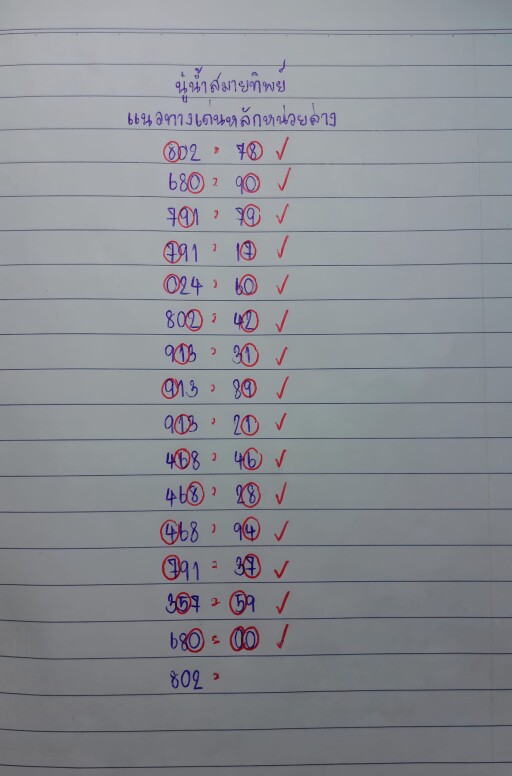 นู๋น้ำสมายทิพย์
แนวทางเด่นหลักหน่วยล่าง
802 = 78 ✓
680 = 90 ✓
791 = 79 ✓
791 = 17 ✓
024 = 60 ✓
802 = 42 ✓
913 = 31 ✓
913 = 89 ✓
913 = 21 ✓
468 = 46 ✓
468 = 28 ✓
468 = 94 ✓
791 = 37 ✓
357 = 59 ✓
680 = 00 ✓
802 =